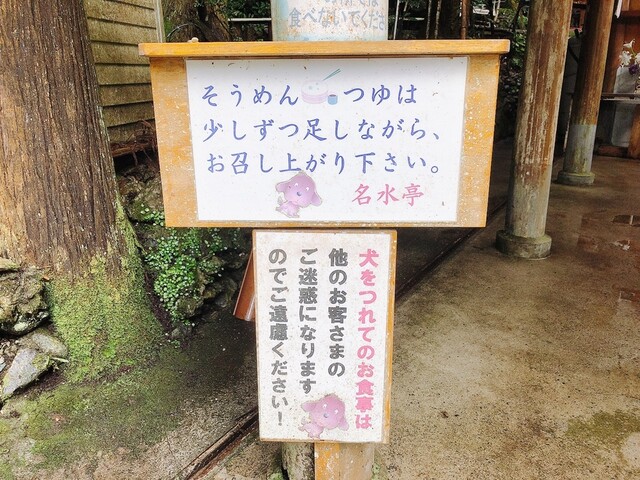 食べないでくださ
そうめん つゆは
少しずつ足しながら、
お召し上がり下さい。
名水亭
犬をつれてのお食事は
他のお客さまの
ご迷惑になります
のでご遠慮ください!